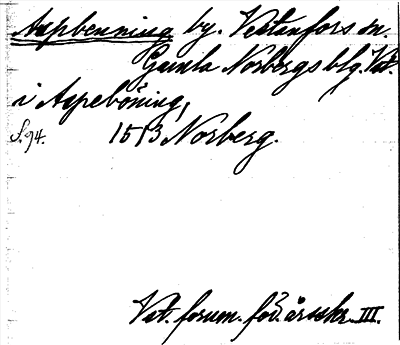 Aspbenning by. Vestanfors sn.
Gamla Norbergs blg. Vstm.
i Aspeböning,
S. 94. 1513 Norberg.
Vst. fornm. för. årsskr. III.